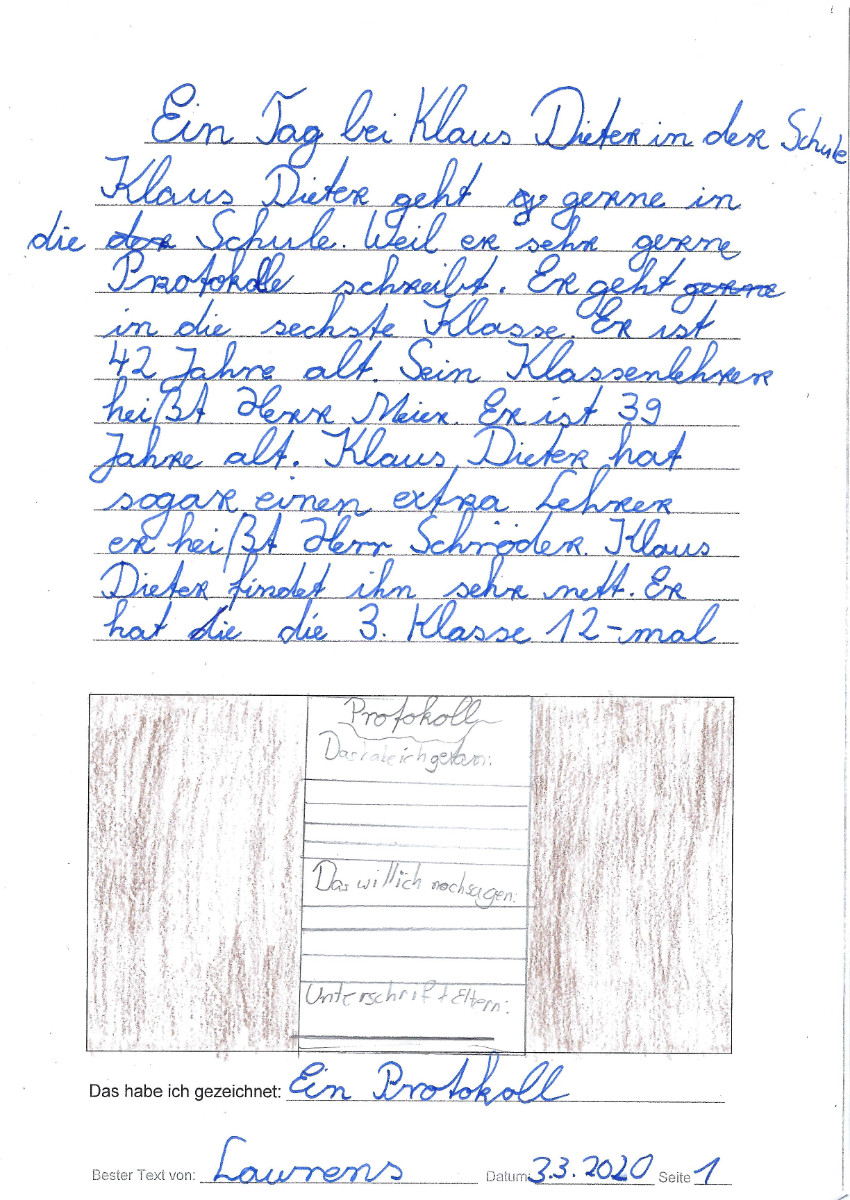 Ein Tag bei Klaus Dieter in der Schule
Klaus Dieter geht g gerne in
die der Schule. Weil er sehr gerne
Protokolle schreibt. Er geht gerne
in die sechste Klasse. Er ist
42 Jahre alt. Sein Klassenlehrer
heißt Herr Meier. Er ist 39
Jahre alt. Klaus Dieter hat
sogar einen extra Lehrer
er heißt Herr Schröder. Klaus
Dieter findet ihn sehr nett. Er
hat die die 3. Klasse 12-mal
Protokoll
Das habe ich getan:
Das will ich noch sagen:
Unterschrift Eltern:
Das habe ich gezeichnet: Ein Protokoll
Bester Text von: Lawrens Datum: 3.3.2020 Seite 1